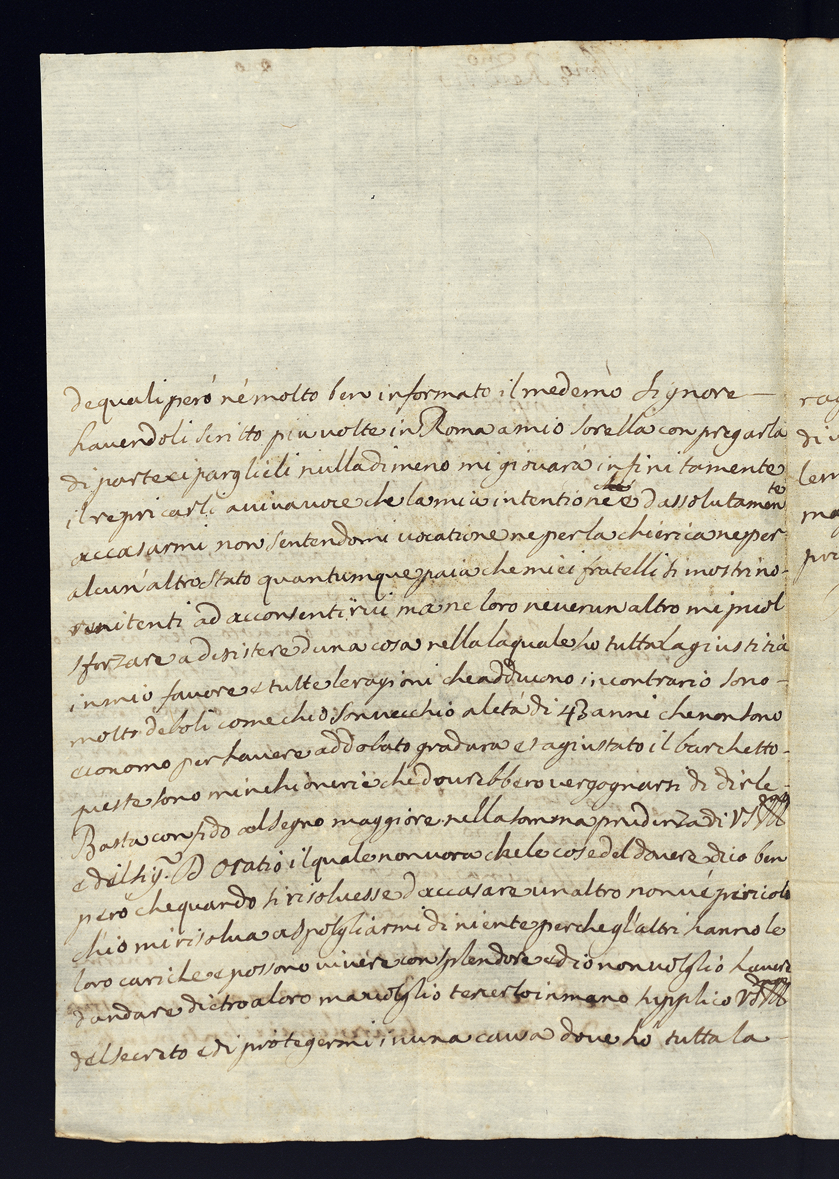 de quali peró né molto ben informato il medemo Signore
havendoli scritto piu volte in Roma a mio sorella con pregarla
di partecipargli eli nulladimeno mi giovará infinitamente
il repricarli a viva voce che la mia intentione é d assolutamente
accasarmi, non sentendomi vocatione ne per la chierica ne per
alcun' altro stato quantumque paia che miei fratelli si mostrino
renitenti ad acconsentirvi ma ne loro neverun altro mi puol
sforzare a desistere d una cosa nella laquale ho tutta la giustitia
in mio favore e tutte le ragioni che adducono in contrario sono
molto deboli come ch io son vecchio a l etá di 43 anni che non sono
economo per havere addobato gradura e sagiustato il barchetto
queste sono minchionerie che dovrebbero vergognarsi di dirle
Basta confido al segno maggiore nella somma prudenza di VS
e del sig.r D Oratio il quale non vora che le cose del dovere dico ben
peró che quando si risoluesse d accasare un altro non vé pericolo
ch'io mi risolua a spolgliarmi di niente perche gl'altri hanno le
loro cariche e possono vivere con splendore ed io non volglio havere
d andare dietro a loro ma volglio tenerlo in mano supplico VS
del secreto e di protegermi in una causa dove hó tutta la
rag
di v
lem
ma